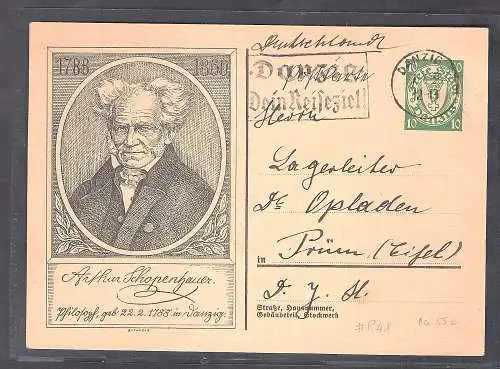 1788 1860
Arthur Schopenhauer.
Philosoph, geb. 22. 2. 1788 in Danzig.
Deutschland
Danzig
Dein Reiseziel
DANZIG
10 10
Herrn
Lagerleiter
Dr. Opladen
in Prüm (Eifel)
Straße, Hausnummer,
Gebäudeteil, Stockwerk